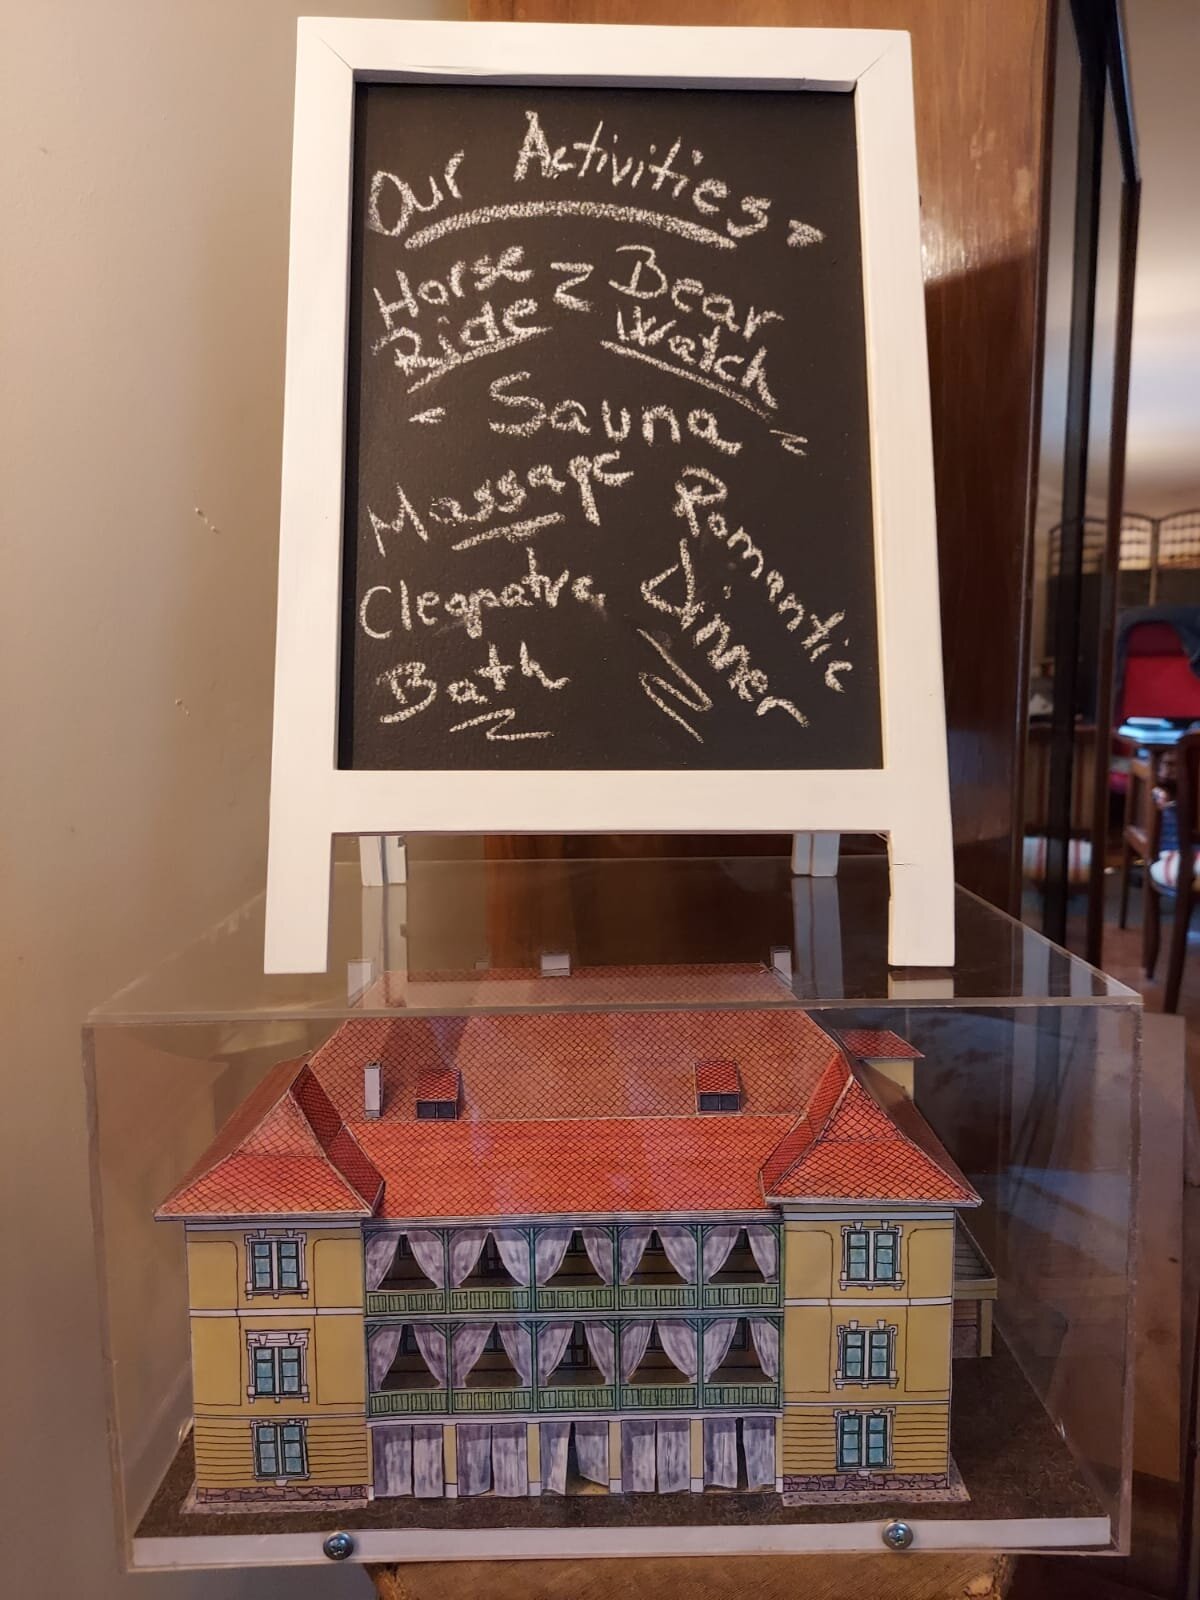 Our Activities
Horse
Ride
Bear
Watch
Sauna
Massage
Romantic
dinner
Cleopatra
Bath